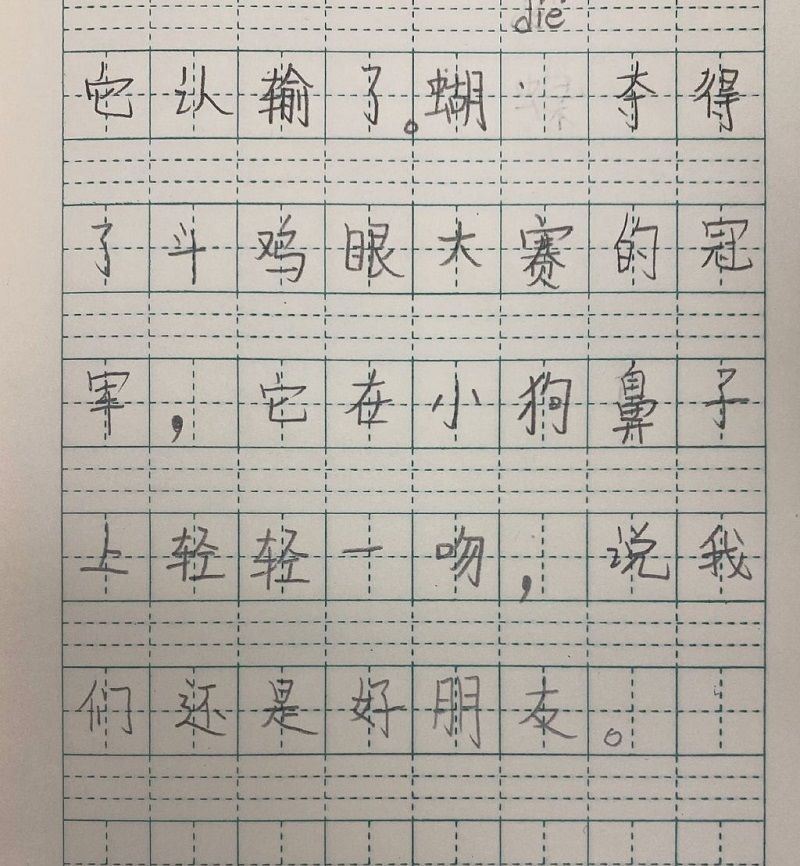 die
它认输了。蝴 夺得
了斗鸡眼大赛的冠
军，它在小狗鼻子
上轻轻一吻，说我
们还是好朋友。